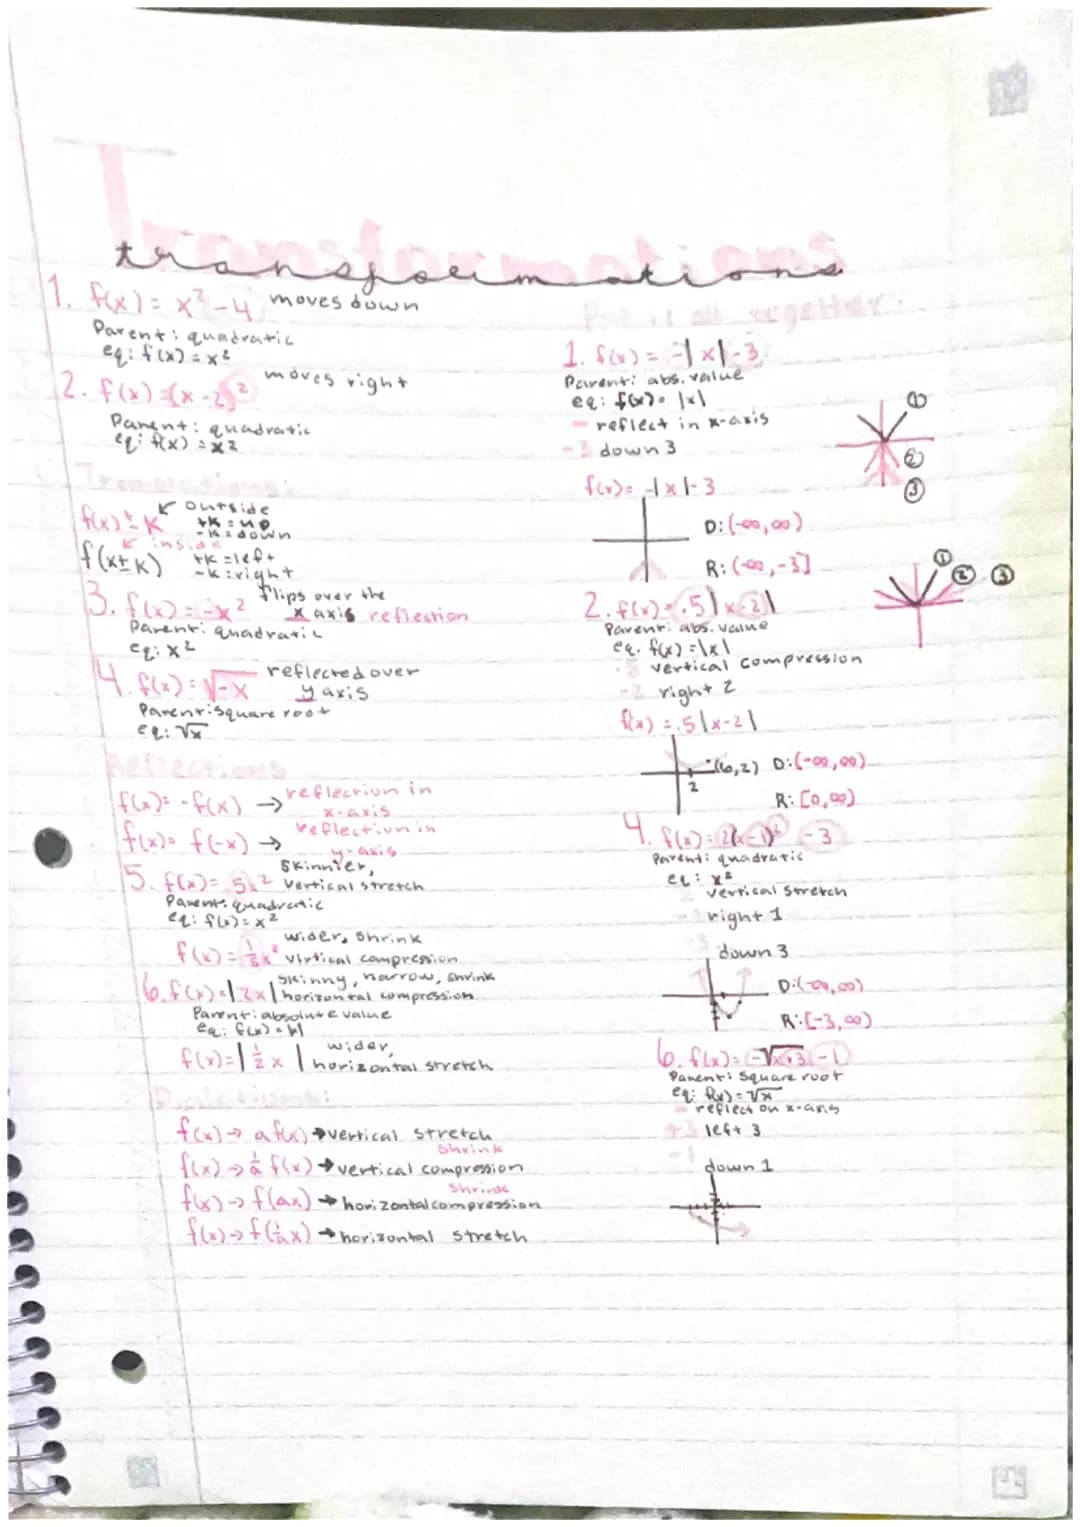 Transformations
transformations
1. f(x) = x² - 4 moves down
Parent: quadratic
eq: f(x) = x²
2. f(x) = (x - 2)² moves right
Parent: quadratic
eq: f(x) = x²
Translations:
f(x) ± K ↙ outside
+K = up
-K = down
f(x±K) ↙ inside
+K = left
-K = right
3. f(x) = -x² flips over the
x axis reflection
Parent: quadratic
eq: x²
4. f(x) = √-x reflected over
y axis
Parent: square root
eq: √x
Reflections
f(x) = -f(x) → reflection in
x-axis
f(x) = f(-x) → reflection in
y-axis
5. f(x) = 5x² skinnier,
vertical stretch
Parent: quadratic
eq: f(x) = x²
wider, shrink
vertical compression
6. f(x) = |2x| skinny, narrow, shrink
horizontal compression
Parent: absolute value
eq: f(x) = |x|
f(x) = |½x| wider,
horizontal stretch
f(x) → a f(x) → vertical stretch
shrink
f(x) → 1/a f(x) → vertical compression
shrink
f(x) → f(ax) → horizontal compression
f(x) → f(1/a x) → horizontal stretch
Put it all together:
1. f(x) = -|x| - 3
Parent: abs. value
eq: f(x) = |x|
- reflect in x-axis
-3 down 3
① ② ③
f(x) = -|x| - 3
D: (-∞, ∞)
R: (-∞, -3]
① ② ③
2. f(x) = .5|x-2|
Parent: abs. value
eq. f(x) = |x|
.5 vertical compression
-2 right 2
f(x) = .5|x-2|
(6,2) D: (-∞, ∞)
2
R: [0, ∞)
4. f(x) = 2(x-1)² - 3
Parent: quadratic
eq: x²
vertical stretch
right 1
-3 down 3
D: (-∞, ∞)
R: [-3, ∞)
6. f(x) = -√x+3 - 1
Parent: square root
eq: f(x) = √x
- reflect on x-axis
+3 left 3
-1 down 1